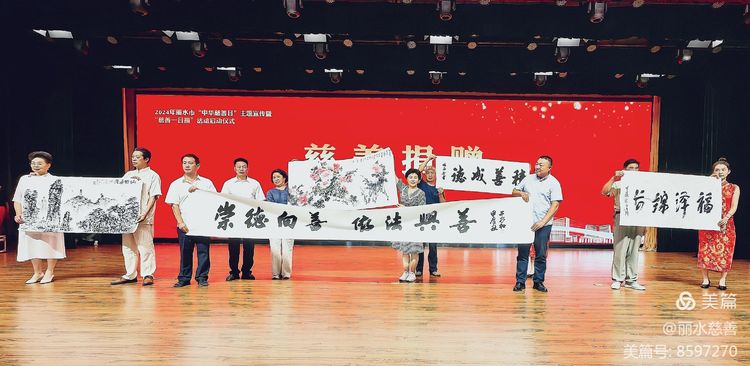 2024年丽水市“中华慈善日”主题宣传暨
“慈善一日捐”活动启动仪式
慈善捐赠
積善成德
崇德向善 依法興善
福澤錦長
美篇
@丽水慈善
美篇号: 8597270